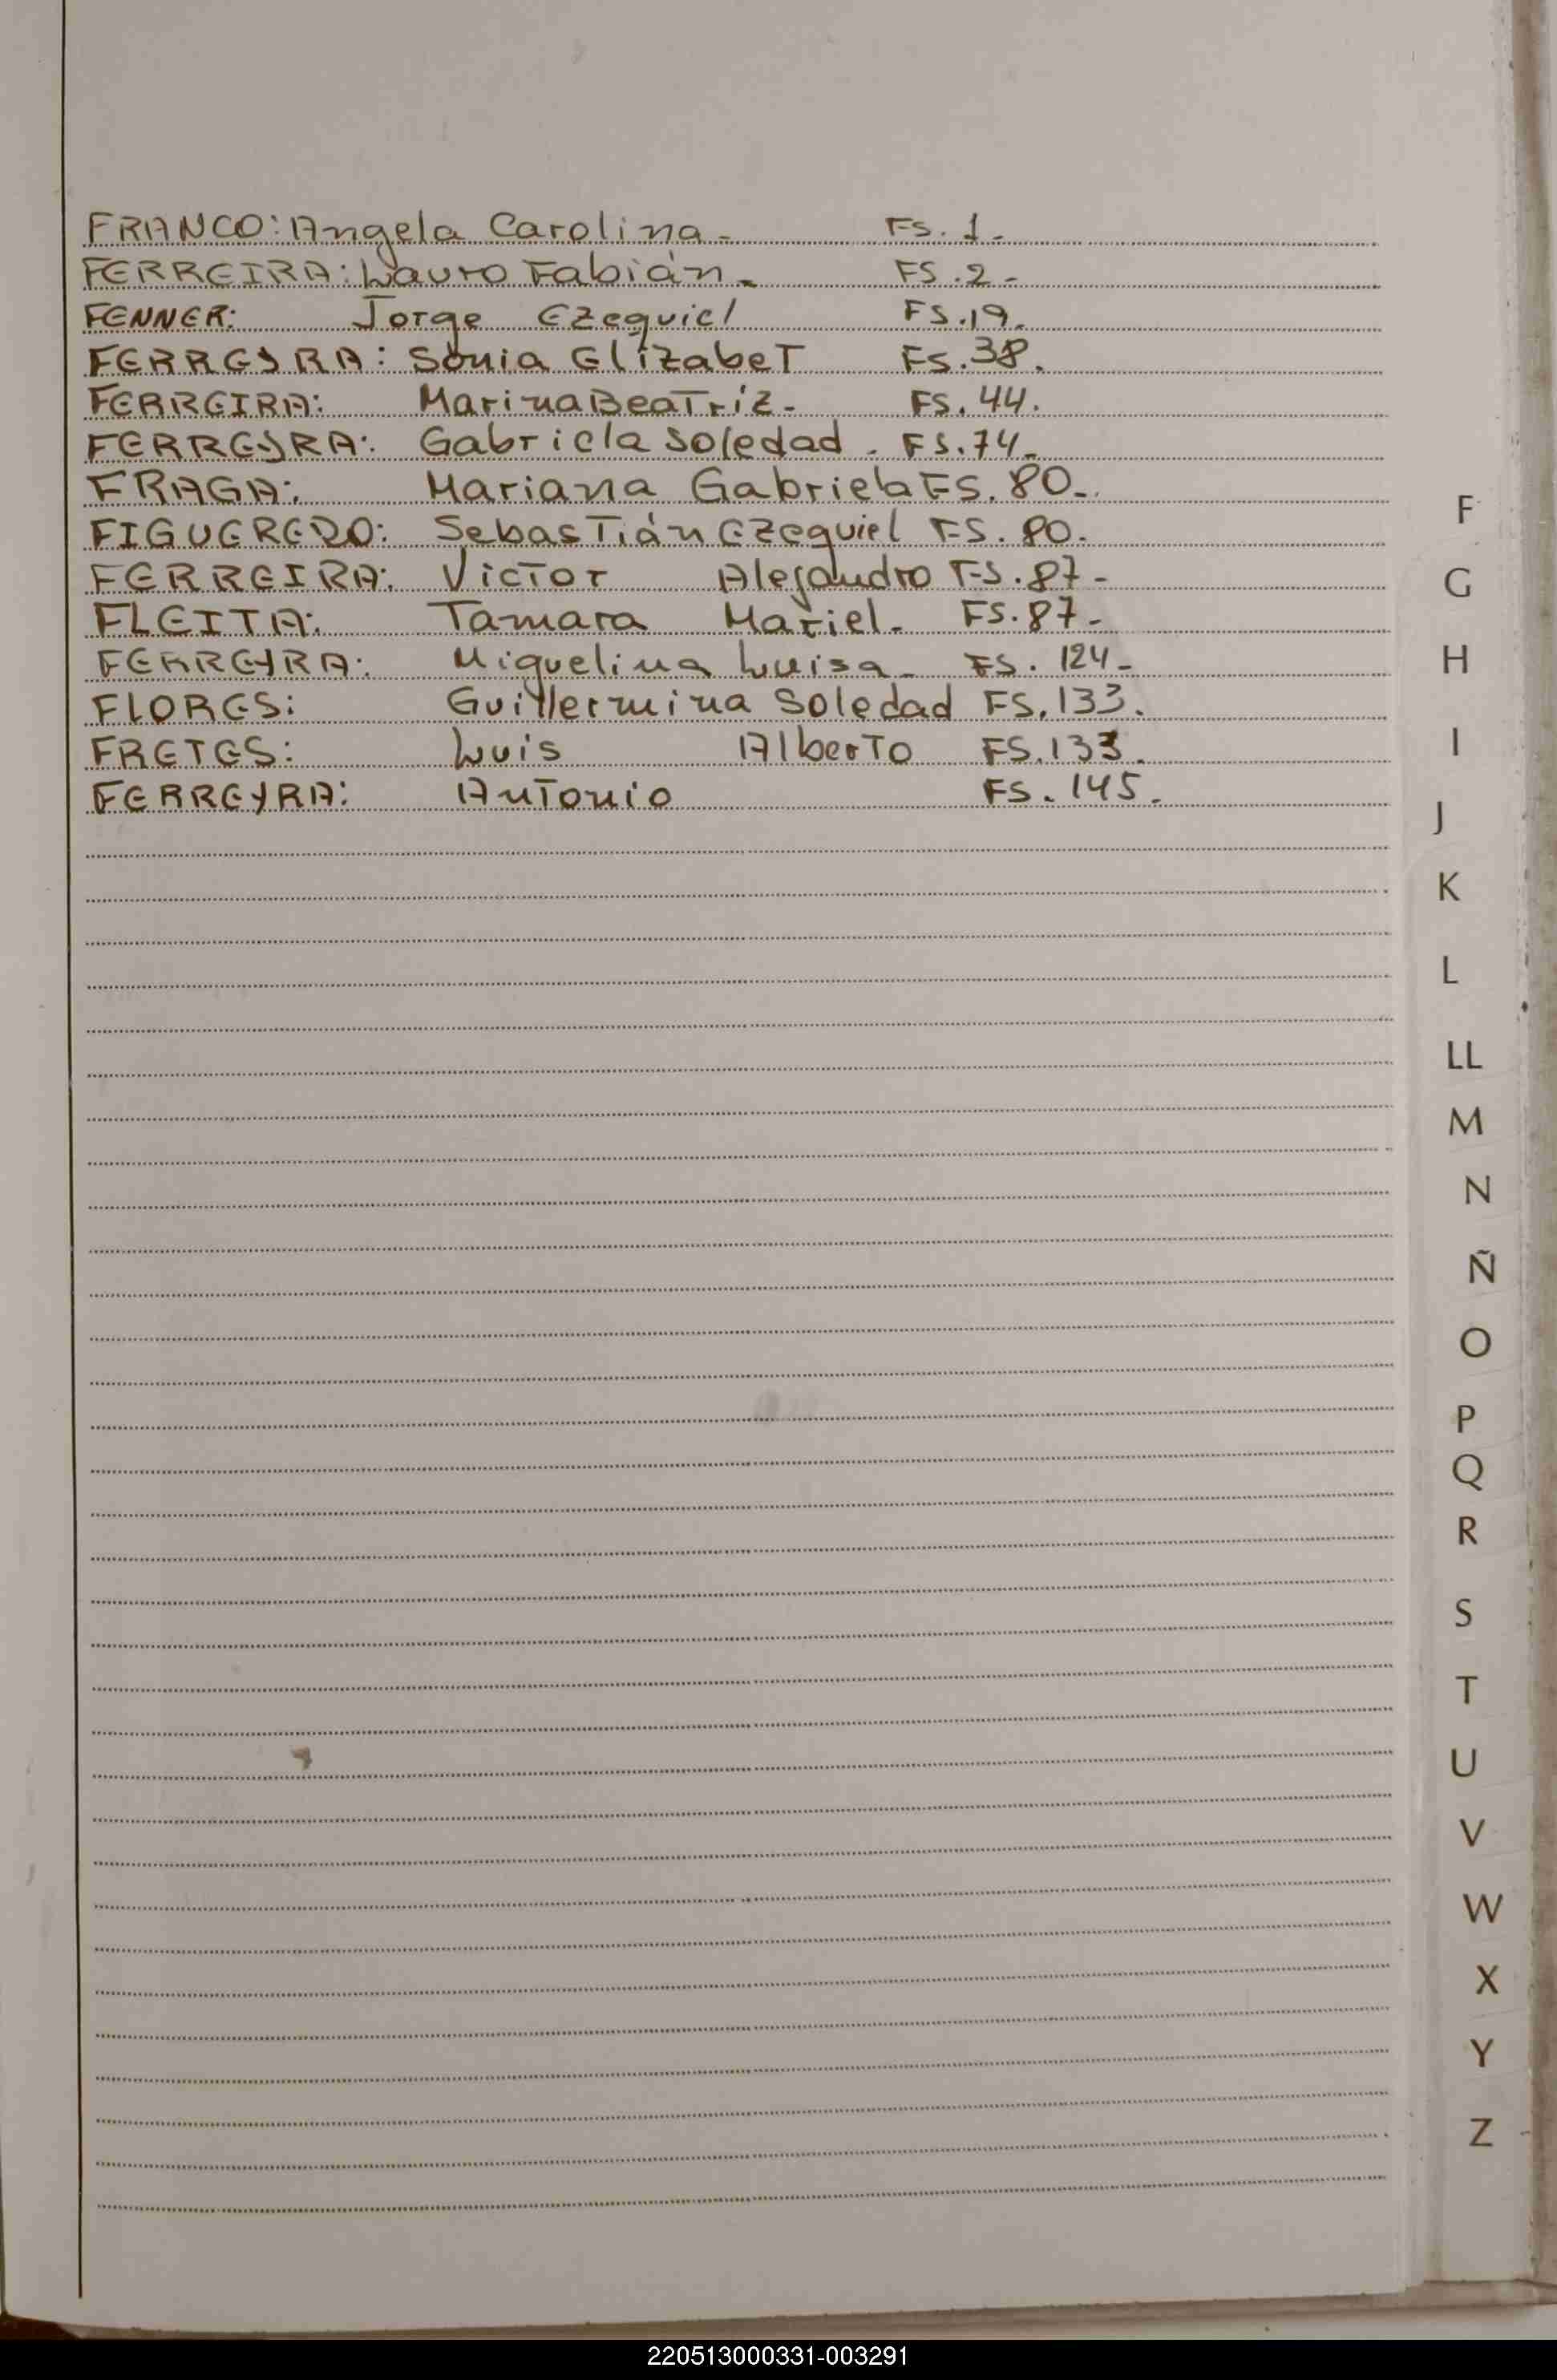 FRANCO: Angela Carolina - FS. 1.-
FERREIRA: Lauro Fabián.- FS. 2 -
FENNER: Jorge Ezequiel FS. 19.
FERREYRA: Sonia Elizabet FS. 38.
FERREIRA: Marina Beatriz - FS. 44.
FERREYRA: Gabriela Soledad . FS. 74.-
FRAGA: Mariana Gabriela FS. 80.-
FIGUEREDO: Sebastián Ezequiel FS. 80.
FERREIRA: Victor Alejandro FS. 87 -
FLEITA: Tamara Mariel. FS. 87.-
FERREYRA: Miguelina Luisa - FS. 124 -
FLORES: Guillermina Soledad FS. 133.
FRETES: Luis Alberto FS. 133.
FERREYRA: Antonio FS. 145.
F
G
H
I
J
K
L
LL
M
N
Ñ
O
P
Q
R
S
T
U
V
W
X
Y
Z
220513000331-003291